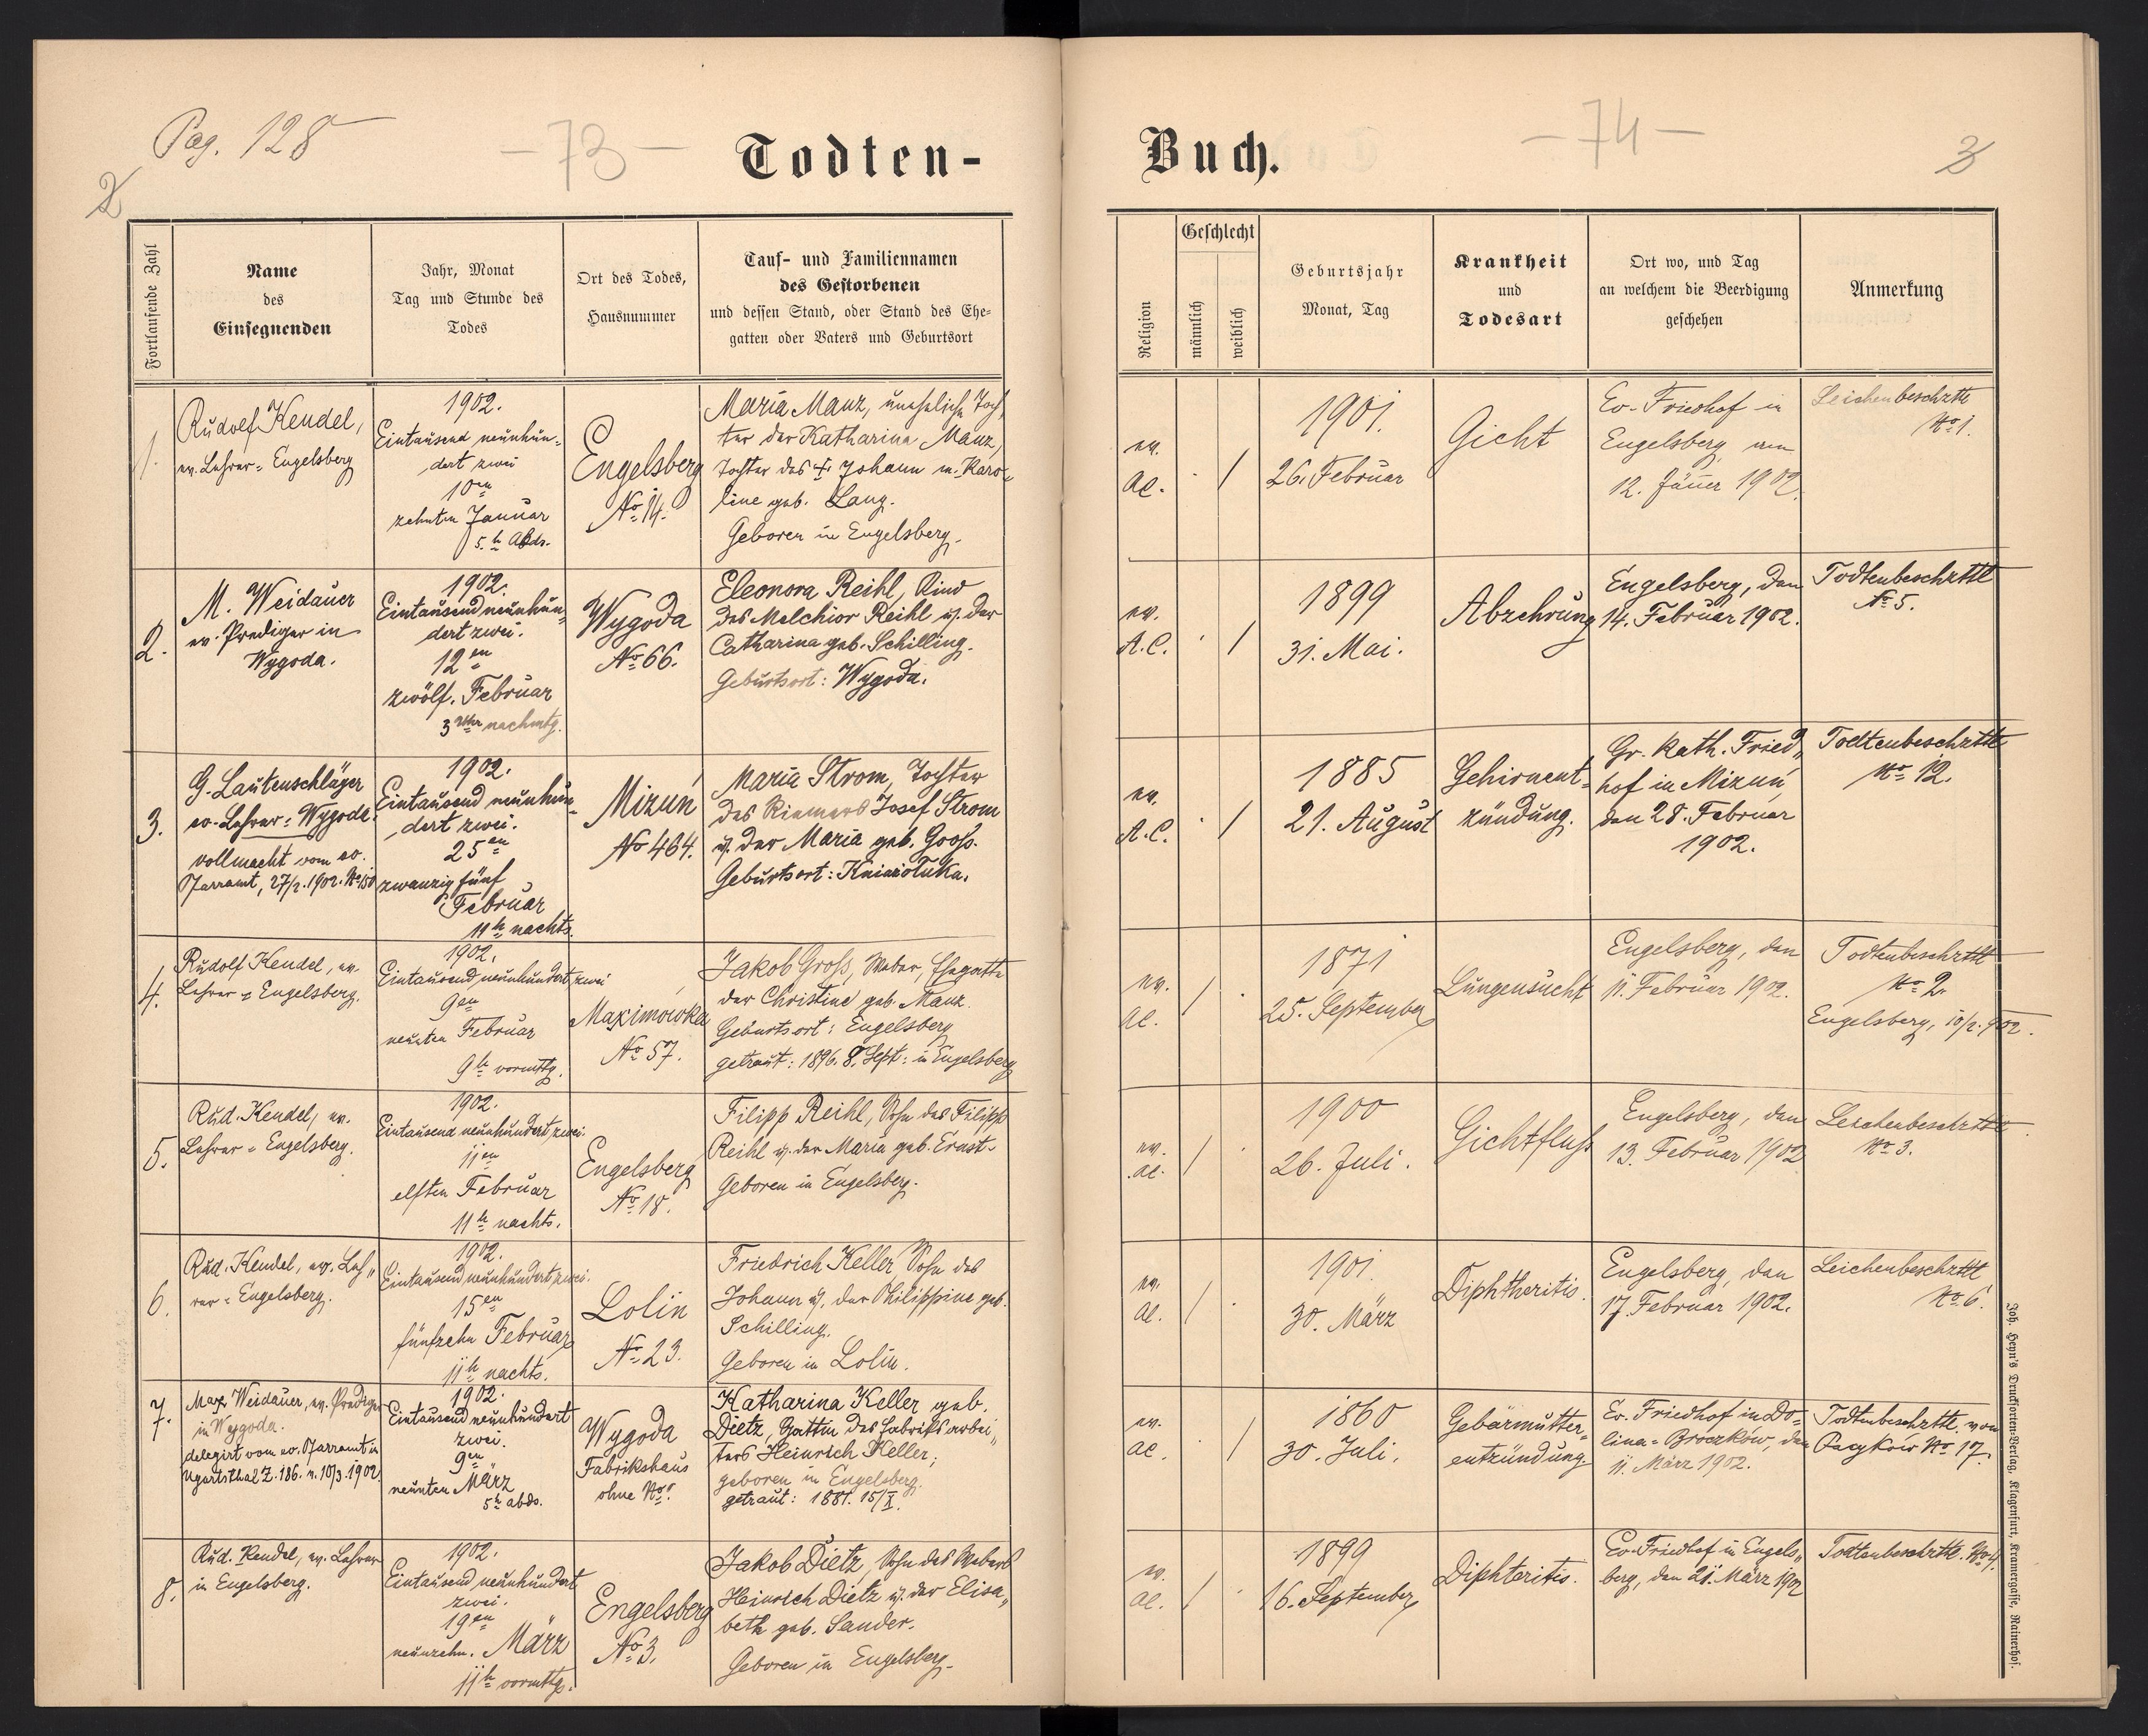 Pag. 128
- 73 -
Todten-
2
Fortlaufende Zahl
Name
des
Einsegnenden
Jahr, Monat
Tag und Stunde des
Todes
Ort des Todes,
Hausnummer
Tauf- und Familiennamen
des Gestorbenen
und dessen Stand, oder Stand des Ehe-
gatten oder Vaters und Geburtsort
1.
Rudolf Kendel,
ev. Lehrer = Engelsberg
1902.
Eintausend neunhun-
dert zwei
10en
zehnten Januar
5.h Abds.
Engelsberg
No 14.
Maria Manz, uneheliche Toch,
ter der Katharina Manz,
Tochter des +. Johann u. Karo-
line geb. Lang.
Geboren in Engelsberg.
2.
M. Weidauer
ev. Prediger in
Wygoda.
1902.
Eintausend neunhun-
dert zwei.
12en
zwölf. Februar
3 Uhr nachmtg.
Wygoda
No 66.
Eleonora Reihl, Kind
des Melchior Reihl u. der
Catharina geb. Schilling.
Geburtsort: Wygoda.
3.
G. Lautenschläger
ev. Lehrer = Wygoda.
vollmacht vom ev.
Pfarramt, 27/2. 1902. No 150
1902.
Eintausend neunhun-
dert zwei.
25en
zwanzig fünf
Februar
11h nachts.
Mizuń
No 464.
Maria Strom, Tochter
des Riemers Josef Strom
u. der Maria geb. Gross.
Geburtsort: Kniaziołuka.
4.
Rudolf Kendel, ev.
Lehrer = Engelsberg.
1902.
Eintausend neunhundert zwei
9en
neunten Februar
9h vormttg.
Maximówka
No 57.
Jakob Gross, Weber, Ehegatte
der Christine geb. Manz.
Geburtsort: Engelsberg
getraut: 1896. 8. Sept: in Engelsberg
5.
Rud. Kendel, ev.
Lehrer = Engelsberg.
1902.
Eintausend neunhundert zwei.
11en
elften Februar
11h nachts.
Engelsberg
No 18.
Filipp Reihl, Sohn des Filipp
Reihl u. der Maria geb. Ernst.
Geboren in Engelsberg.
6.
Rud. Kendel, ev. Leh„
rer = Engelsberg.
1902.
Eintausend neunhundert zwei.
15en
fünfzehn Februar
11h nachts.
Lolin
No 23.
Friedrich Keller Sohn des
Johann u. der Philippine geb.
Schilling.
Geboren in Lolin.
7.
Max Weidauer, ev. Prediger
in Wygoda.
delegirt vom ev. Pfarramt in
Ugartsthal Z. 186. v. 10/3. 1902.
1902.
Eintausend neunhundert
zwei.
9en
neunten März
5h abds.
Wygoda
Fabrikshaus
ohne No
Katharina Keller geb.
Dietz, Gattin des Fabriksarbei„
ters Heinrich Keller,
geboren in Engelsberg.
getraut: 1881. 15/X.
8.
Rud. Kendel, ev. Lehrer
in Engelsberg.
1902.
Eintausend neunhundert
zwei.
19en
neunzehn. März
11h vormttgs.
Engelsberg
No 3.
Jakob Dietz, Sohn des Webers
Heinrich Dietz u. der Elisa„
beth geb. Sander.
Geboren in Engelsberg.
Buch.
- 74 -
3
Religion
Geschlecht
männlich
weiblich
Geburtsjahr
Monat, Tag
Krankheit
und
Todesart
Ort wo, und Tag
an welchem die Beerdigung
geschehen
Anmerkung
ev.
AC.
/
1901.
26. Februar
Gicht
Ev. Friedhof in
Engelsberg am
12. Jänner 1902.
Leichenbeschrttl
No 1.
ev.
A.C.
/
1899
31. Mai.
Abzehrung
Engelsberg, den
14. Februar 1902.
Todtenbeschrttl
No 5.
ev.
A.C.
/
1885
21. August
Gehirnent-
zündung.
Gr. Kath. Fried„
hof in Mizuń
den 28. Februar
1902.
Todtenbeschrttl
No 12.
ev.
AC.
/
1871
25. September
Lungensucht
Engelsberg, den
11. Februar 1902.
Todtenbeschrttl
No 2.
Engelsberg, 10/2. 902.
ev.
AC.
/
1900
26. Juli.
Gichtfluss
Engelsberg, den
13. Februar 1902
Leichenbeschrttl
No 3.
ev.
AC.
/
1901.
30. März
Diphtheritis.
Engelsberg, den
17. Februar 1902.
Leichenbeschrttl
No 6.
ev.
AC.
/
1860
30. Juli.
Gebärmutter-
entzündung.
Ev. Friedhof in Do-
lina-Broczków, den
11. März 1902.
Todtenbeschrttl. von
Pacyków No 17.
ev.
AC.
/
1899
16. September
Diphteritis.
Ev. Friedhof in Engels„
berg, den 21. März 1902
Todtenbeschrttl. No 4.
Joh. Heyn's Drucksorten-Verlag, Klagenfurt, Kramergasse, Rainerhof.